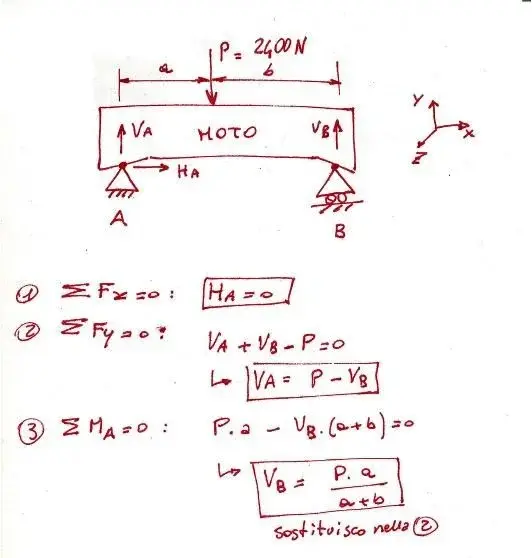 P = 2400N
a b
VA MOTO VB
HA
A B
Y
X
Z
① ΣFx=0: HA=0
② ΣFy=0: VA+VB-P=0
↳ VA= P-VB
③ ΣMA=0: P.a - VB.(a+b)=0
↳ VB= P.a/a+b
sostituisco nella ②